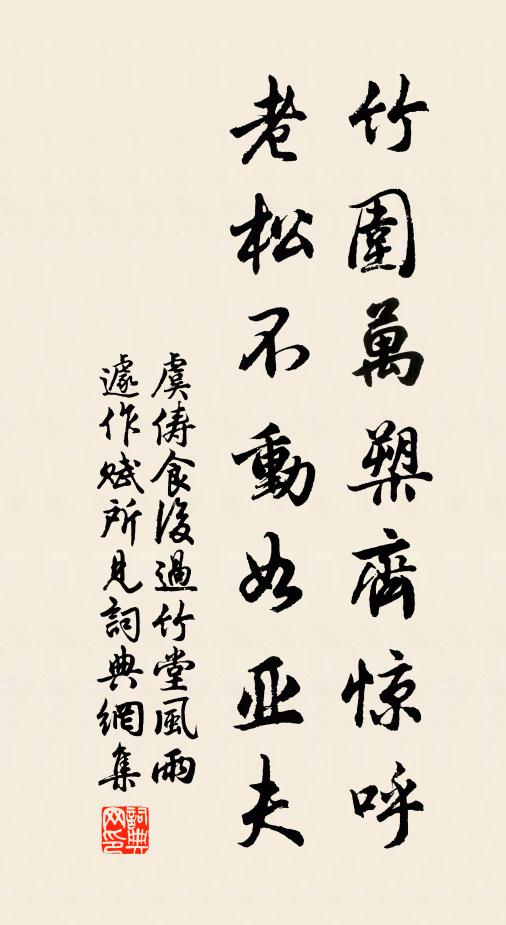 竹圍萬槊齊惊呼
老松不動如亚夫
虞俦食後過竹堂風雨
遽作赋所見詞典網集
詞典网印